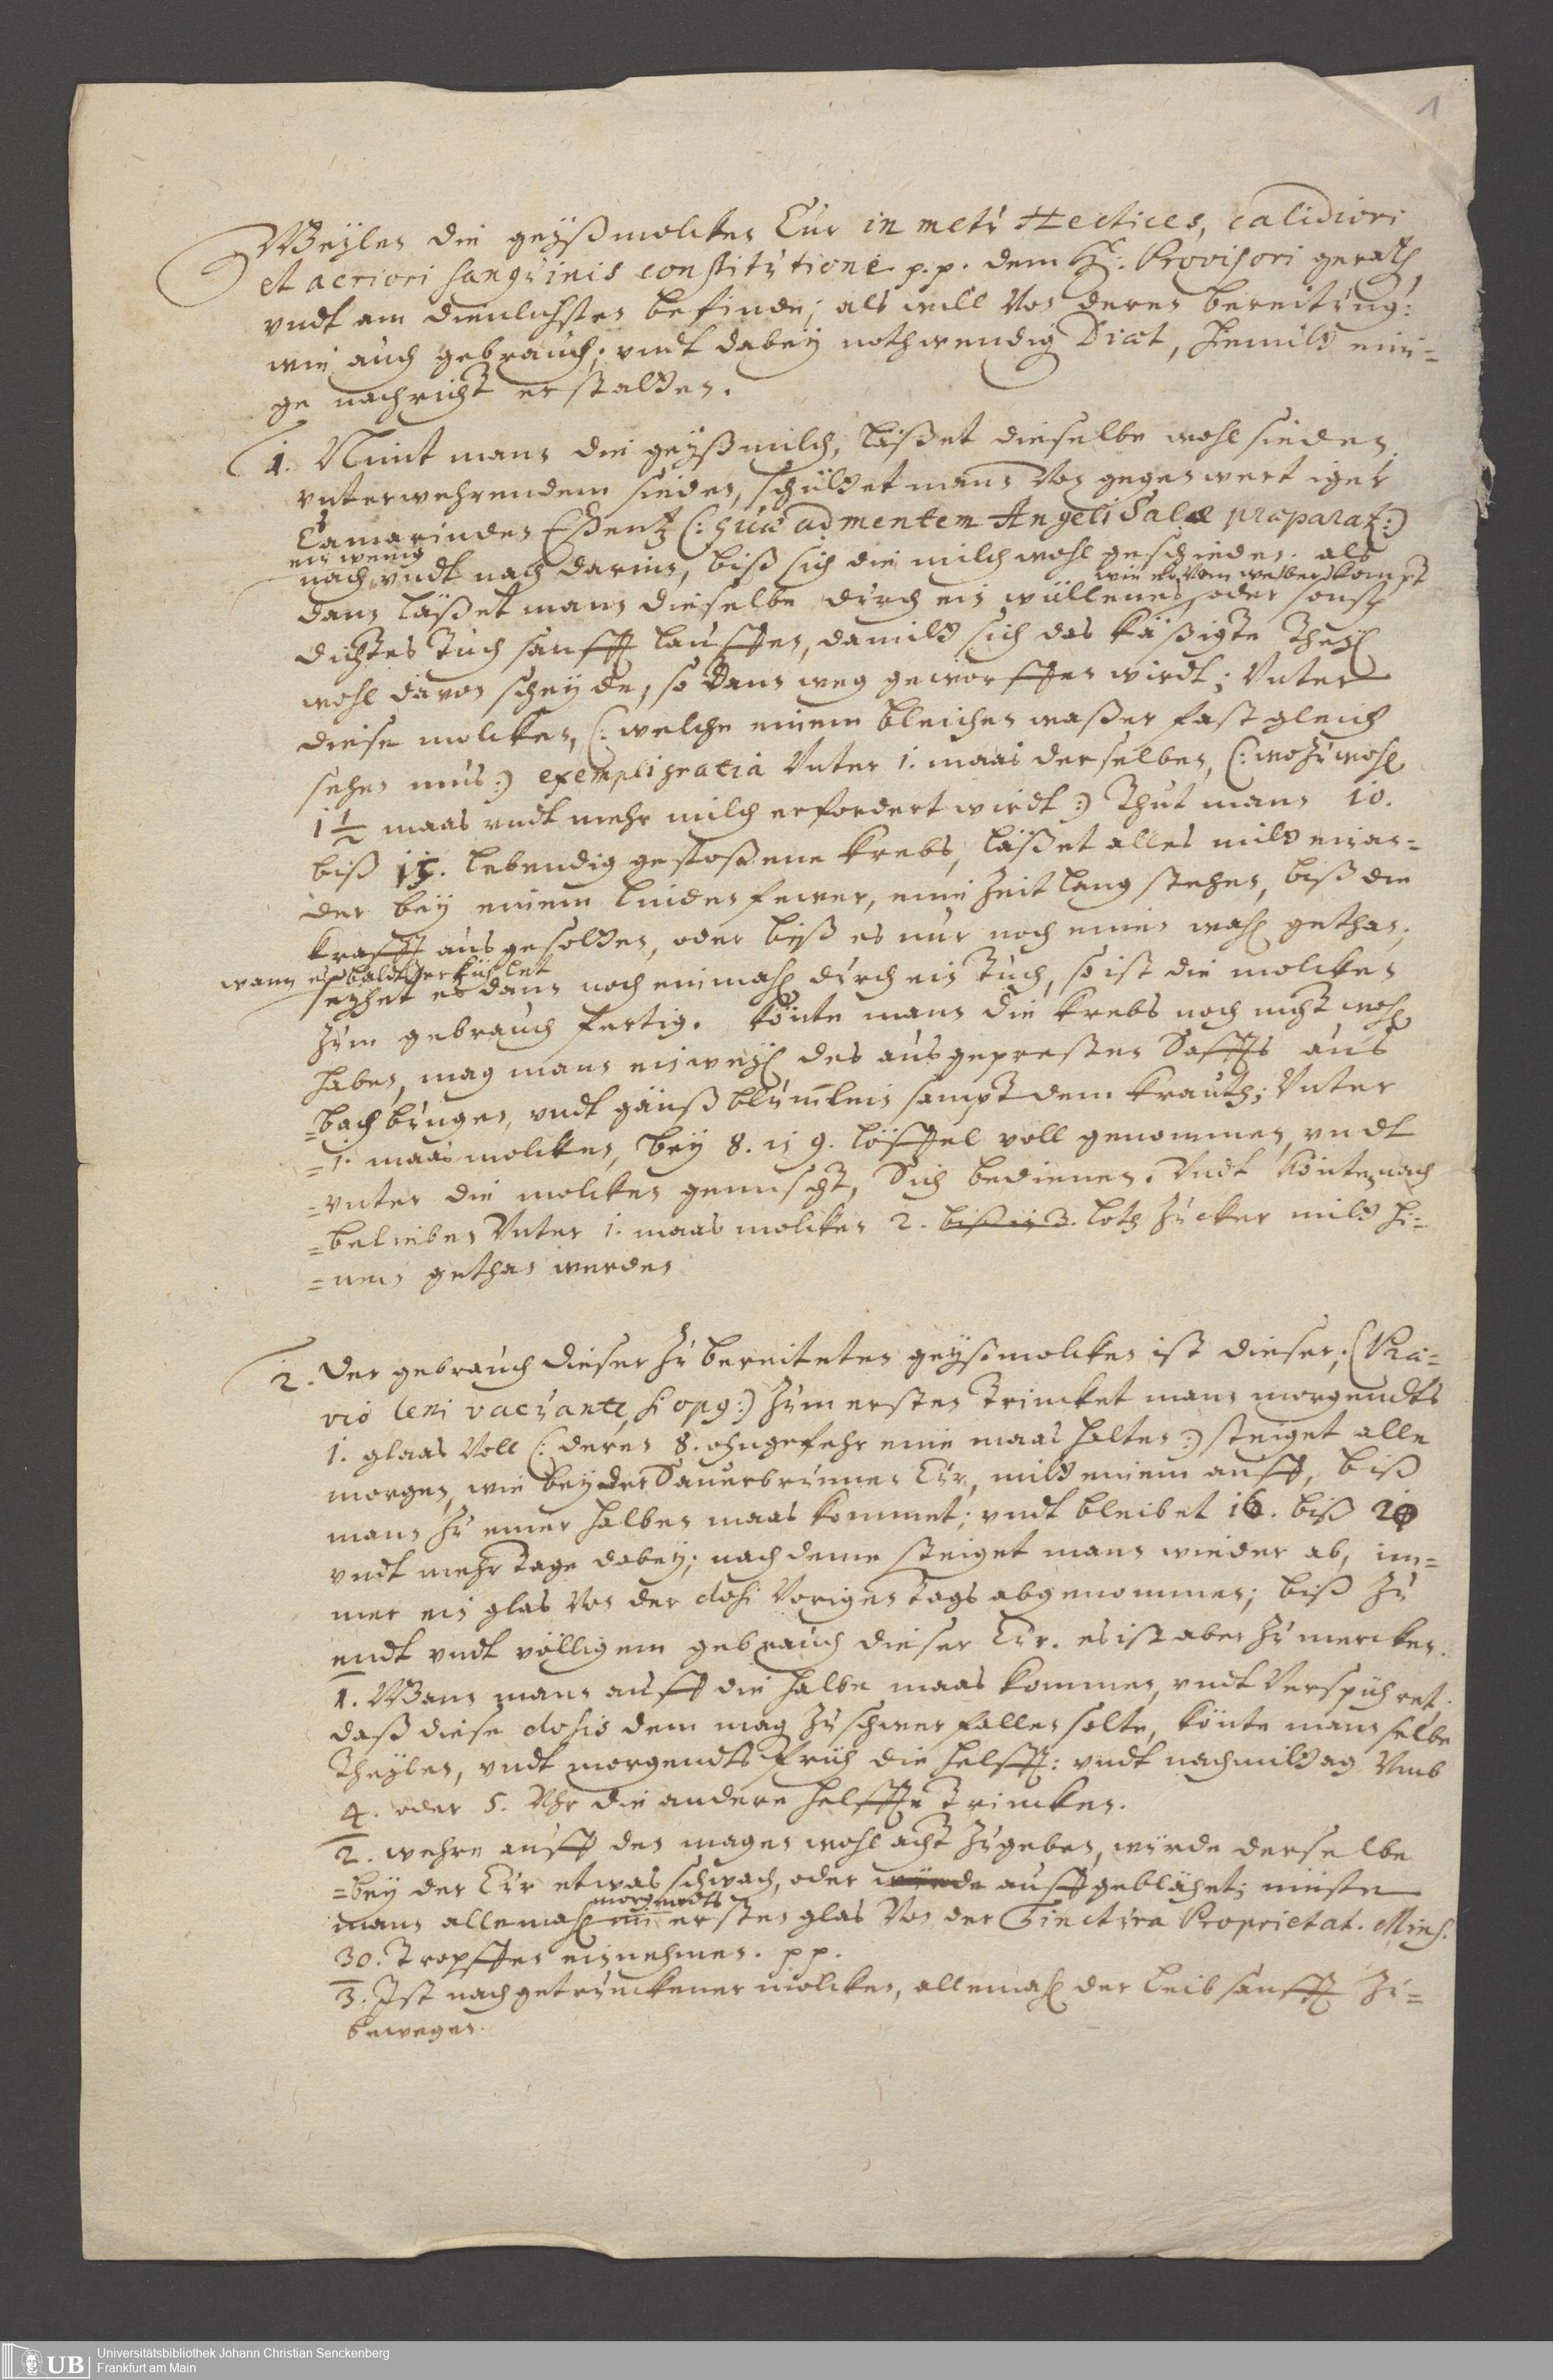 1
Weylen die geyßmolcken Cur in metu Hectices, calidiori
et acriori sanguinis constitutione p.p. dem H: Provisori gerath
undt am dienlichsten befinde; als will Von deren bereitung:
wie auch gebrauch; undt dabey nothwendig Diæt, hiemitt eini=
ge nachricht erstatten.
1. Nimt mann die geyßmilch, läßet dieselbe wohl sieden
unterwehrendem sieden, schüttet mann Von gegenwertiger
Tamarinden Eßentz (: quæ ad mentem Angeli Salæ præparat :)
ein wenig
nach undt nach darein, biß sich die milch wohl geschieden. als
wie er Vom weber kompt
dann läßet mann dieselbe durch ein wüllenes oder sonst
dichtes Tuch sanfft lauffen, damitt sich das käßigte Theyl
wohl davon scheyde, so dann weg geworffen wirdt; Unter
diese molcken, (: welche einem bleichen waßer fast gleich
sehen mus :) exempli gratia Unter 1. maas derselben, (: wozu wohl
1 1/2 maas undt mehr milch erfordert wirdt :) Thut mann 10.
biß 15. lebendig gestoßene krebs, läßet alles mitt einan=
der bey einem linden fewer, eine Zeit lang stehen, biß die
krafft ausgesotten, oder biß es nur noch einen wahl gethan;
wann es baldt erkühlet
seyhet es dann noch einmahl durch ein Tuch, so ist die molcken
Zum gebrauch fertig. könte mann die krebs noch nicht wohl
haben, mag mann einweyl des ausgepresten Saffts aus
=bachbungen, undt gänßblümlein sampt dem krauth; Unter
=1. maas molcken, bey 8. à 9. löffel voll genommen, undt
=unter die molcken gemischt, Sich bedienen. Undt könte nach
=belieben Unter 1. maas molcken 2. biß 3. loth Zucker mitt hi=
=nein gethan werden
2. Der gebrauch dieser Zu bereiteten geyßmolcken ist dieser; (Præ=
vio leni vacuante, si op9 :) Zum ersten Trincket mann morgendts
1. glaas Voll (: deren 8. ohngefehr eine maas halten :) steiget alle
morgen, wie bey der Sauerbrunnen Cur, mitt einem auff, biß
mann Zu einer halben maas kommet; undt bleibet 16. biß 20
undt mehr Tage dabey; nach deme steiget mann wieder ab, im=
mer ein glas Von der dosi Vorigen Tags abgenommen; biß Zu
endt undt völligem gebrauch dieser Cur. es ist aber Zu mercken.
1. Wann mann auff die halbe maas kommen, undt Verspühret
daß diese dosis dem mag. Zu schwer fallen solte, könte mann selbe
Theylen, undt morgendts früh die helfft: undt nachmittag Umb
4. oder 5. Uhr die andere helffte Trincken.
2. wehre auff den magen wohl acht Zugeben, würde derselbe
=bey der Cur etwas schwach, oder würde auffgeblähet; müste
morgendts
mann allemahl im ersten glas Von der Tinctura Proprietat. Mins.
30. Tropffen einnehmen. pp.
3. Ist nach getrunckener molcken, allemahl der leib sanfft Zu=
bewegen.
UB Universitätsbibliothek Johann Christian Senckenberg
Frankfurt am Main